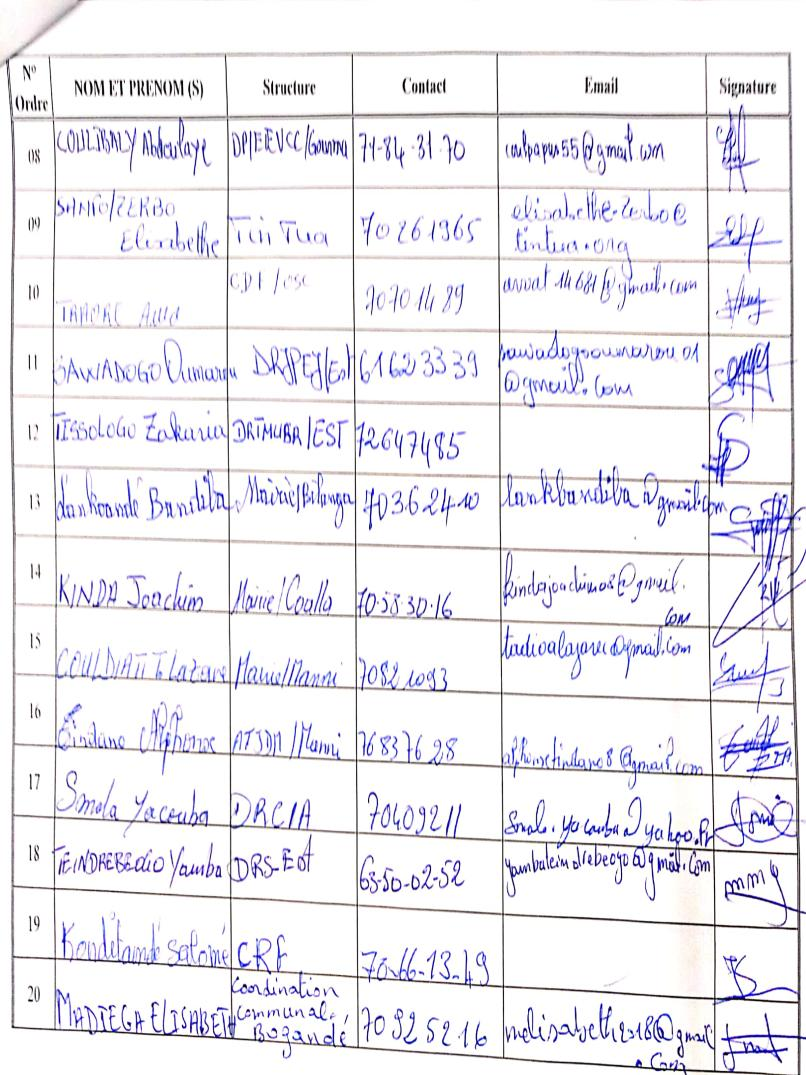 N° Ordre NOM ET PRENOM (S) Structure Contact Email Signature
08 COULIBALY Abdoulaye DPIEEVCC/Gourma 71-84-31-70 coulpapus55@gmail.com
09 SANFO/ZERBO Elisabethe Tin Tua 70261965 elisabethe.zerbo@
tintua.org
10 CDT/ 70701489 @gmail.com
11 SAWADOGO Oumarou DRJPEJ/Est 61623339 sawadogooumarou01
@gmail.com
12 TISSOLOGO Zakaria DRTMUBR/EST 72647485
13 Lankoandé Bandiba Mairie/Bilanga 70362410 lankbandiba@gmail.com
14 KINDA Joachim Mairie/Coalla 70.58.30.16 kindajoachim08@gmail.
com
15 COULDIATI T Lazare Mairie/Manni 70821093 @gmail.com
16 Tindano Alphonse /Manni 76837628 alphonsetindano8@gmail.com
17 Smala Yacouba DRCIA 70409211 Smala.yacouba@yahoo.fr
18 TEINDREBEOGO Yamba DRS-Est 63-50-02-52 yambateindrebeogo@gmail.com
19 Salomé CRF 70-66-13-49
20 MADIEGA ELISABETH Coordination
communal.
Bogandé 70925216 melisabeth2018@gmail
.com